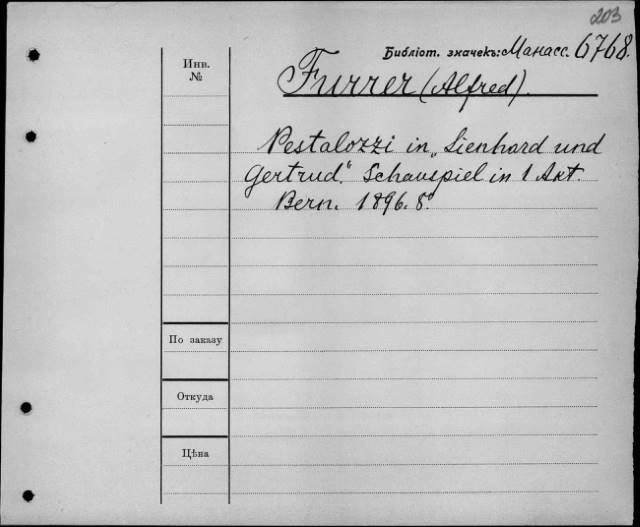 203
Библіот. значекъ: Манасс. 6768.
Инв.
№
Furrer (Alfred).
Pestalozzi in „Lienhard und
Gertrud.“ Schauspiel in 1 Akt.
Bern. 1896. 8°
По заказу
Откуда
Цѣна